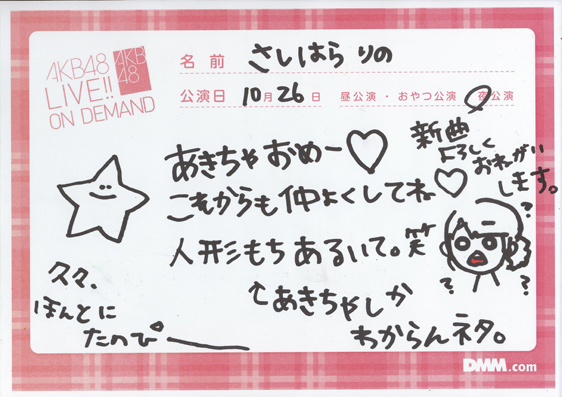 AKB48
LIVE!!
ON DEMAND
AKB
48
名前 さしはら りの
公演日 10月26日 昼公演・おやつ公演・夜公演
新曲
よろしく
おねがい
します。
あきちゃおめー♡
これからも仲よくしてね♡
人形もちあるいて。笑
↑あきちゃしか
わからんネタ。
久々、
ほんとに
たのぴ
? ? ?
DMM.com